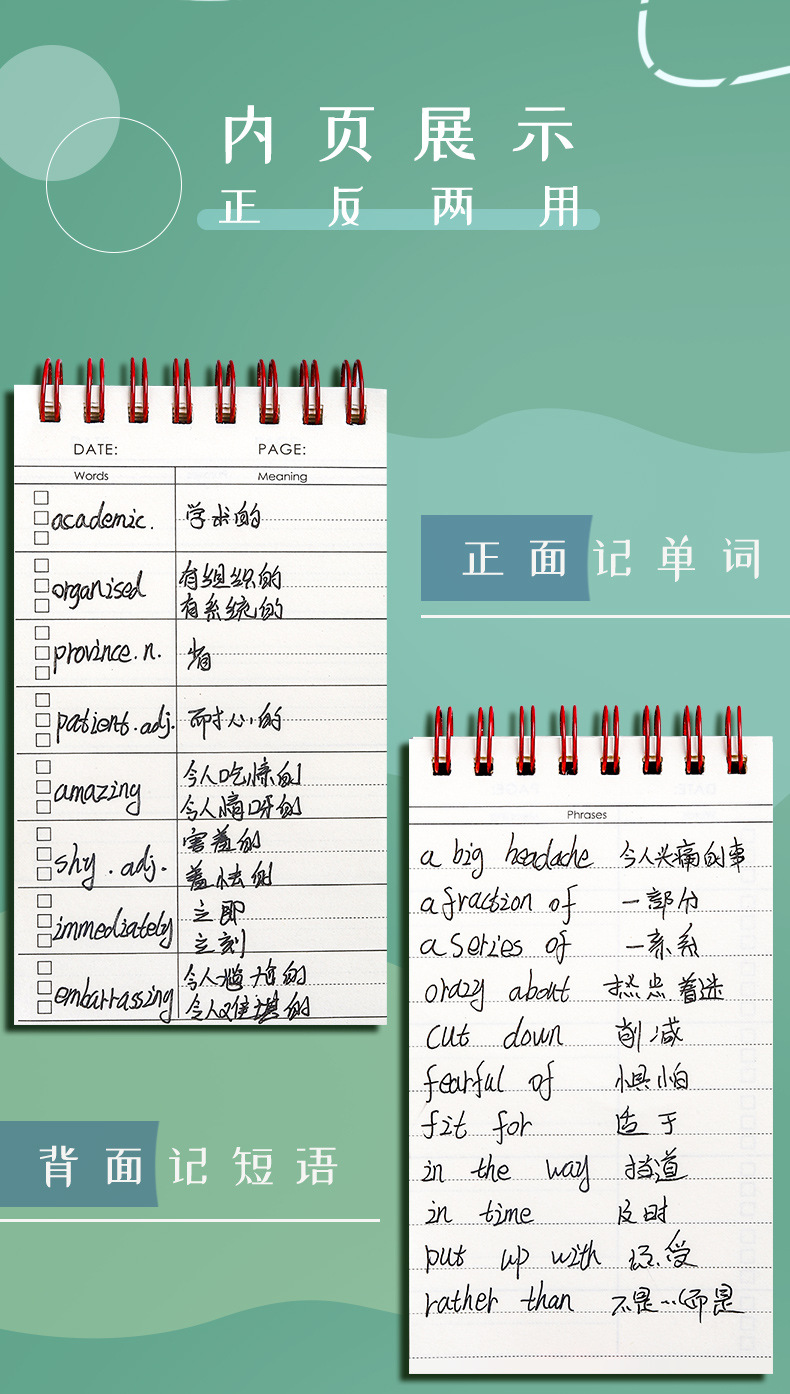 内页展示
正反两用
DATE: PAGE:
Words Meaning
academic. 学术的
organised 有组织的
有系统的
province.n. 省
patient.adj. 耐心的
amazing 令人吃惊的
令人惰呀的
shy.adj. 害羞的
羞怯的
immediately 立即
立刻
embarrassing 令人尴尬的
令人难堪的
正面记单词
Phrases
a big headache 令人头痛的事
a fraction of 一部分
a series of 一系系
crazy about 热忠着迷
cut down 削减
fearful of 惧怕
fit for 适于
in the way 挡道
in time 及时
put up with 忍受
rather than 不是…而是
背面记短语